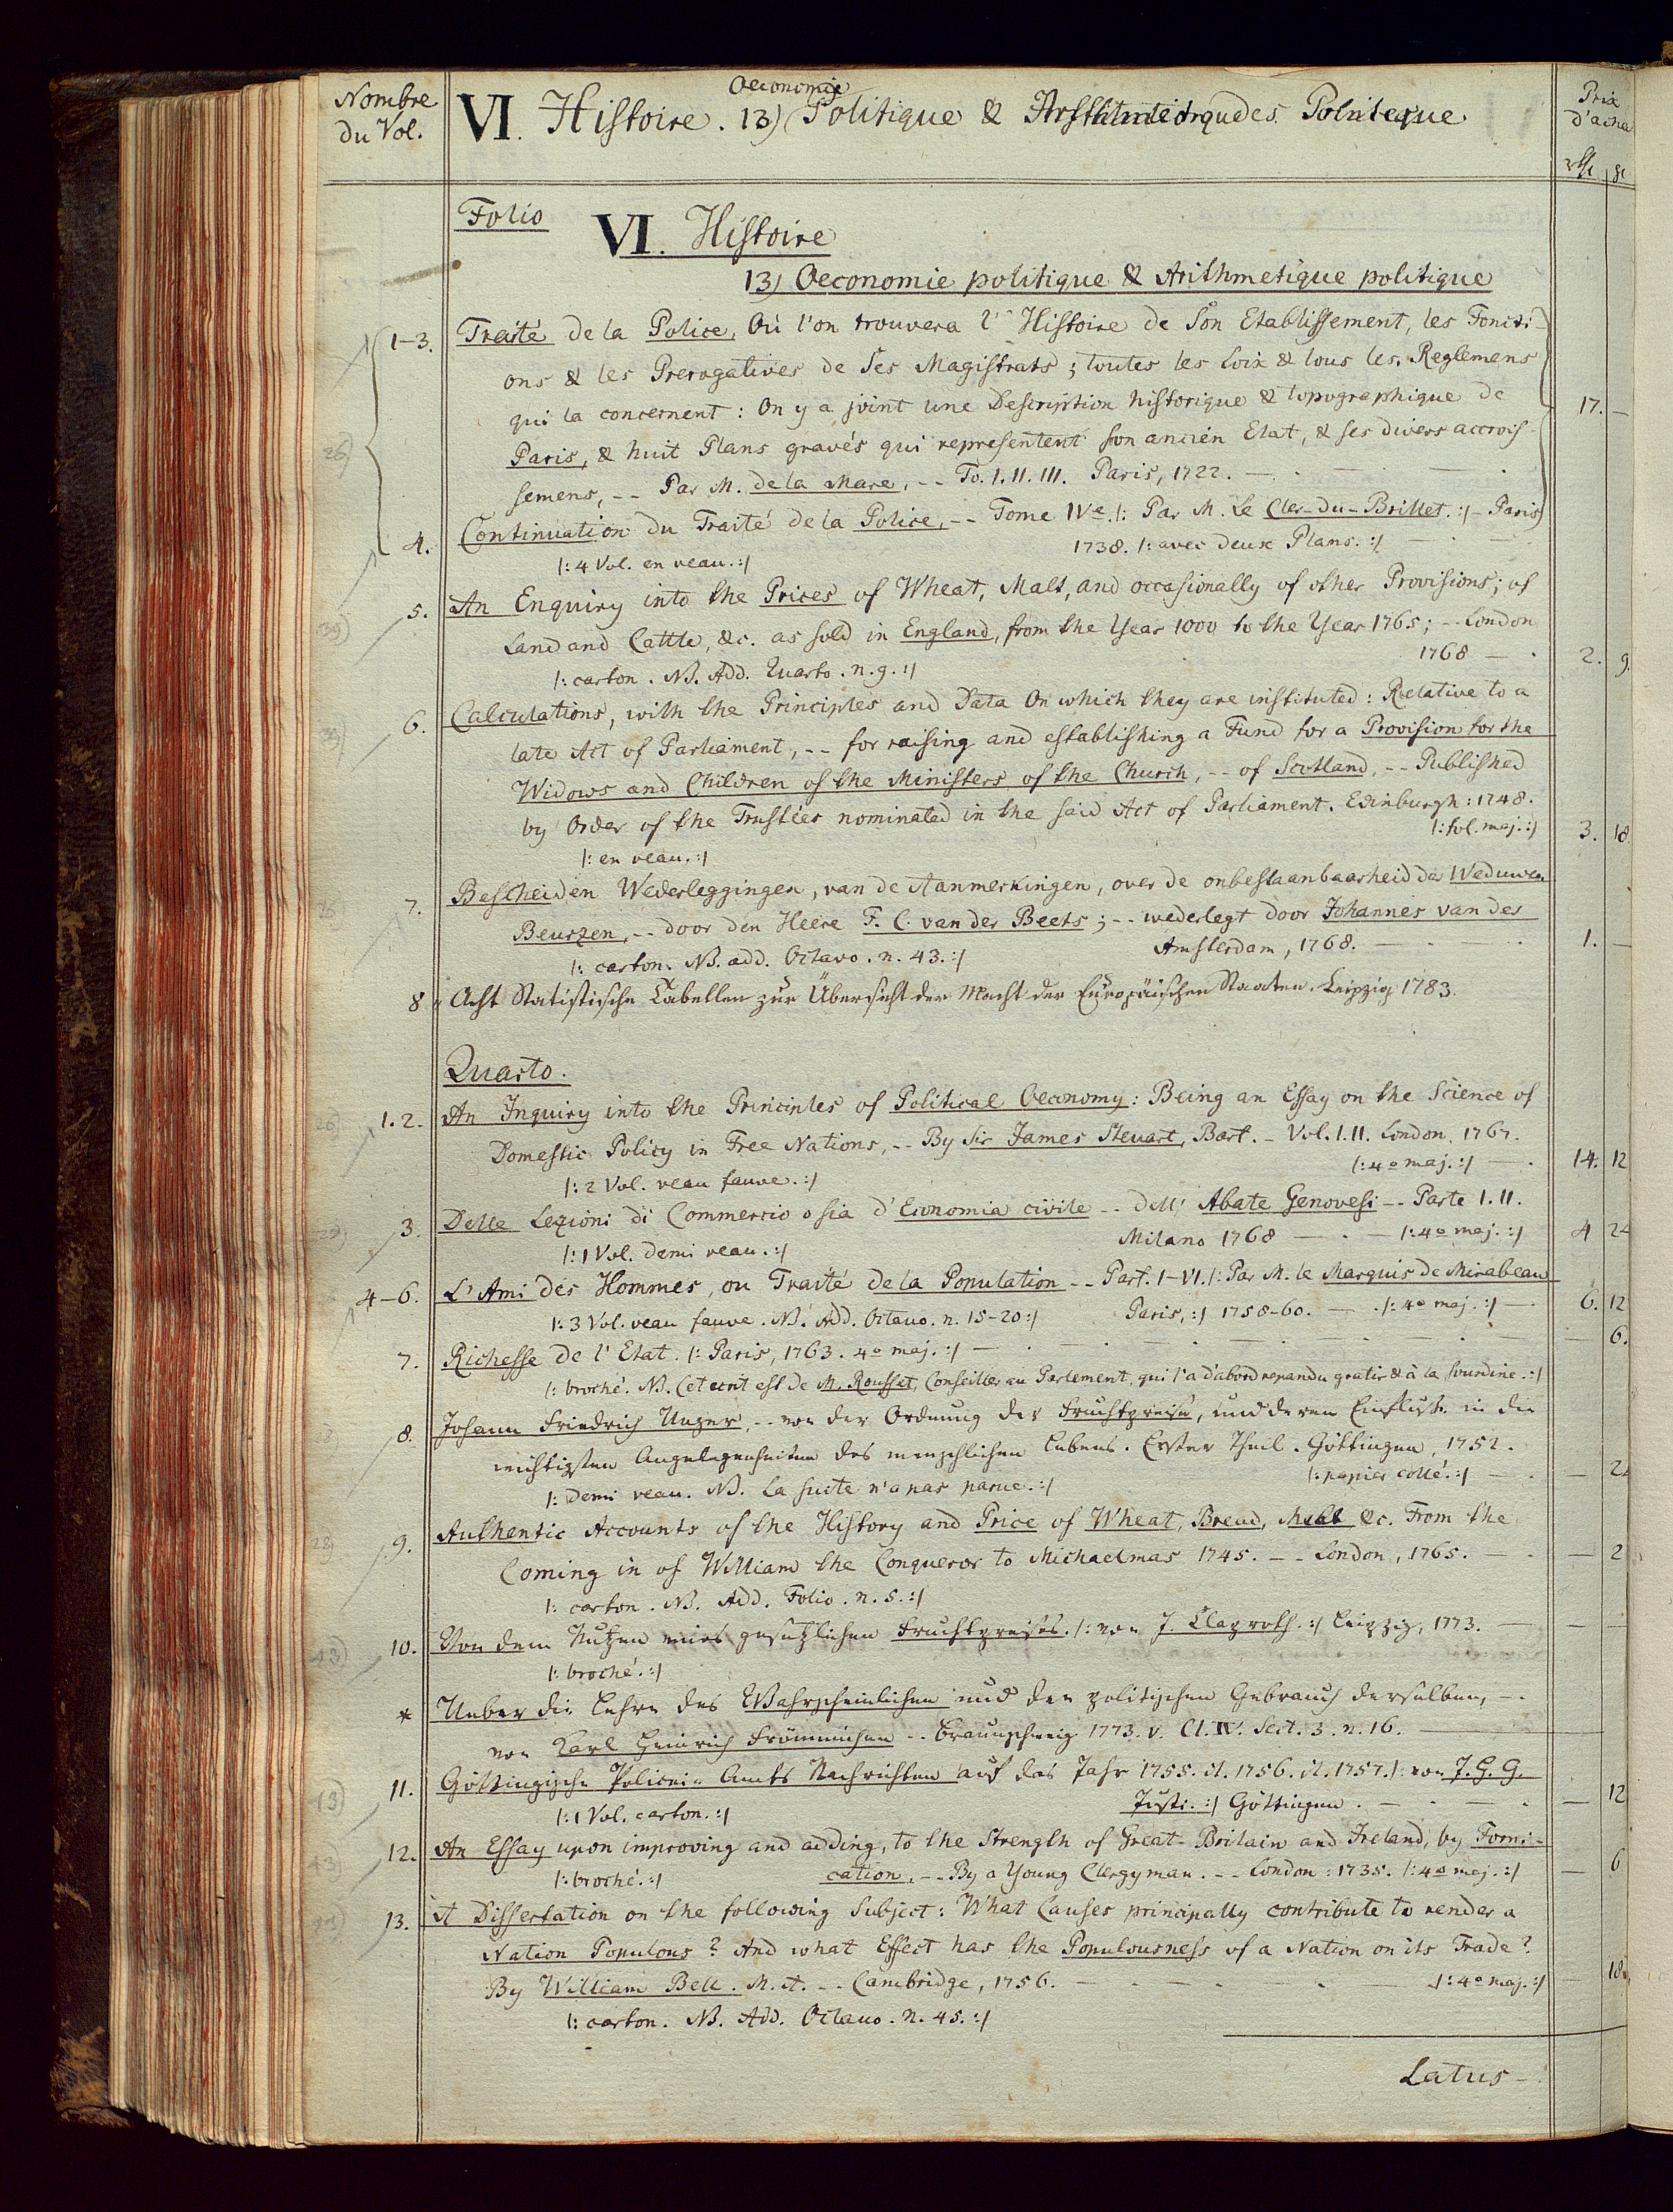 Nombre
du Vol.
Oeconomie
VI. Histoire. 13) Politique & Arithmetique Politique
Prix
d'acha
Folio
VI. Histoire
13) Oeconomie politique & Arithmetique politique
1-3. Traité de la Police, Où l'on trouvera l'Histoire de Son Etablissement, les Foncti-
ons & les Prerogatives de Ses Magistrats; toutes les Loix & tous les Reglemens
qui la concernent: On y a joint une Description historique & topographique de 17. —
Paris, & huit Plans gravés qui representent son ancien Etat, & ses divers accrois-
semens, -- Par M. de la Mare, -- To. I. II. III. Paris, 1722.
4. Continuation du Traité de la Police, -- Tome IVe. /: Par M. Le Cler-du-Brillet. :/ - Paris
1738. /: avec deux Plans. :/
/: 4 Vol. en veau. :/
5. An Enquiry into the Prices of Wheat, Malt, and occasionally of other Provisions; of
Land and Cattle, &c. as sold in England, from the Year 1000 to the Year 1765; -- London
1768 — 2. 9.
/: carton. NB. Add. Quarto. n. 9. :/
6. Calculations, with the Principles and Data On which they are instituted: Relative to a
late Act of Parliament, -- for raising and establishing a Fund for a Provision for the
Widows and Children of the Ministers of the Church, -- of Scotland, -- Published
by Order of the Trustées nominated in the said Act of Parliament. Edinburgh: 1748.
/: fol. maj. :/ 3. 18
/: en veau. :/
7. Bescheiden Wederleggingen, van de Aanmerkingen, over de onbestaanbaarheid der Weduwen
Beurzen, -- door den Heere F. C. van der Beets; -- wederlegt door Johannes van der
Amsterdam, 1768. 1. —
/: carton. NB. add. Octavo. n. 43. :/
8 Acht Statistische Tabellen zur Übersicht der Macht der Europäischen Staaten. Leipzig 1783.
Quarto.
1. 2. An Inquiry into the Principles of Political Oeconomy: Being an Essay on the Science of
Domestic Policy in Free Nations, -- By Sir James Steuart, Bart. - Vol. I. II. London, 1767.
/: 4o maj. :/ 14. 12
/: 2 Vol. veau fauve. :/
3. Delle Lezioni di Commercio o sia d'Economia civile -- dell' Abate Genovesi -- Parte I. II.
Milano 1768 — /: 4o maj. :/ 4 24
/: 1 Vol. demi veau. :/
4-6. L'Ami des Hommes, ou Traité de la Population -- Part. I-VI. /: Par M. le Marquis de Mirabeau
/: 3 Vol. veau fauve. NB. Add. Octavo. n. 15-20 :/ Paris, :/ 1758-60. — /: 4o maj. :/ 6. 12
7. Richesse de l'Etat. /: Paris, 1763. 4o maj. :/ — 6.
/: broché. NB. Cet ecrit est de M. Rousset, Conseiller au Parlement, qui l'a d'abord repandu gratis & à la sourdine. :/
8. Johann Friedrich Unger, -- von der Ordnung der Fruchtpreise, und deren Einflusse in die
wichtigsten Angelegenheiten des menschlichen Lebens. Erster Theil. Göttingen, 1752.
/: papier collé. :/
/: demi veau. NB. La suite n'a pas parue. :/
9. Authentic Accounts of the History and Price of Wheat, Bread, Malt &c. From the
Coming in of William the Conqueror to Michaelmas 1745. -- London, 1765. — 2
/: carton. NB. Add. Folio. n. 5. :/
10. Von dem Nutzen eines gesetzlichen Fruchtpreises. /: von J. Claproth. :/ Leipzig, 1773.
/: broché. :/
* Ueber die Lehre des Wahrscheinlichen und den politischen Gebrauch derselben, --
von Karl Heinrich Frömmichen -- Braunschweig 1773. v. Cl. IV. Sect. 3. n. 16.
11. Göttingische Policei-Amts Nachrichten auf das Jahr 1755. it. 1756. it. 1757. /: von J. H. G.
Justi. :/ Göttingen. — 12
/: 1 Vol. carton. :/
12. An Essay upon improving and adding, to the Strength of Great-Britain and Ireland, by Forni-
cation, -- By a Young Clergyman. -- London: 1735. /: 4o maj. :/ — 6
/: broché. :/
13. A Dissertation on the following Subject: What Causes principally contribute to render a
Nation Populous? And what Effect has the Populousness of a Nation on its Trade?
By William Bell. M. A. -- Cambridge, 1756. /: 4o maj. :/ — 18.
/: carton. NB. Add. Octavo. n. 45. :/
Latus —